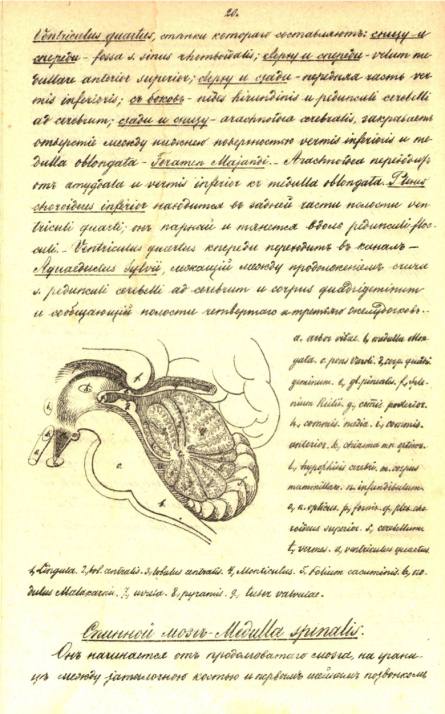 20.
Ventriculus quartus, стѣнки котораго составляютъ: снизу и
спереди - fossa s. sinus rhomboidalis; сверху и спереди - velum me-
dullare anterior superior; сверху и сзади - передняя часть ver-
mis inferioris; съ боковъ - nidus hirundinis и pedunculi cerebelli
ad cerebrum; сзади и снизу - arachnoidea cerebralis, закрываетъ
отверстіе между нижнею поверхностью vermis inferioris и me-
dulla oblongata - Foramen Majandi. - Arachnoidea переходитъ
отъ amygdala и vermis inferior къ medulla oblongata. Plexus
choroideus inferior находится въ задней части полости ven-
triculi quarti; онъ парный и тянется вдоль pedunculi floc-
culi. - Ventriculus quartus кпереди переходитъ въ каналъ -
Aquaeductus Sylvii, лежащій между продолженіемъ
s. pedunculi cerebelli ad cerebrum и corpus quadrigeminum
и сообщающій полости четвертаго и третьяго желудочковъ. -
a. arbor vitae. b, medulla oblon-
gata. c. pons Varoli. d, corp. quadri-
geminum. e, gl. pinealis. f,
Reilii. g, comis. posterior.
h, comunis. media. i, comunis.
anterior. k, chiasma nn. opticor.
l, hypophisis cerebri. m. corpus
mammillare. n. infundibulum.
o, n. opticus. p, fornix. q, plex. cho-
roideus superior. s, cerebellum
t, vermis. u, ventriculus quartus
1, Lingula. 2, lob. centralis. 3, lobulus centralis. 4, Monticulus. 5. folium cacuminis. 6, no-
dulus Malacarni. 7, uvula. 8, pyramis. 9, tuber valvulae.
Спинной мозгъ - Medulla spinalis.
Онъ начинается отъ продолговатаго мозга, на грани-
цѣ между затылочною костью и первымъ шейнымъ позвонкомъ